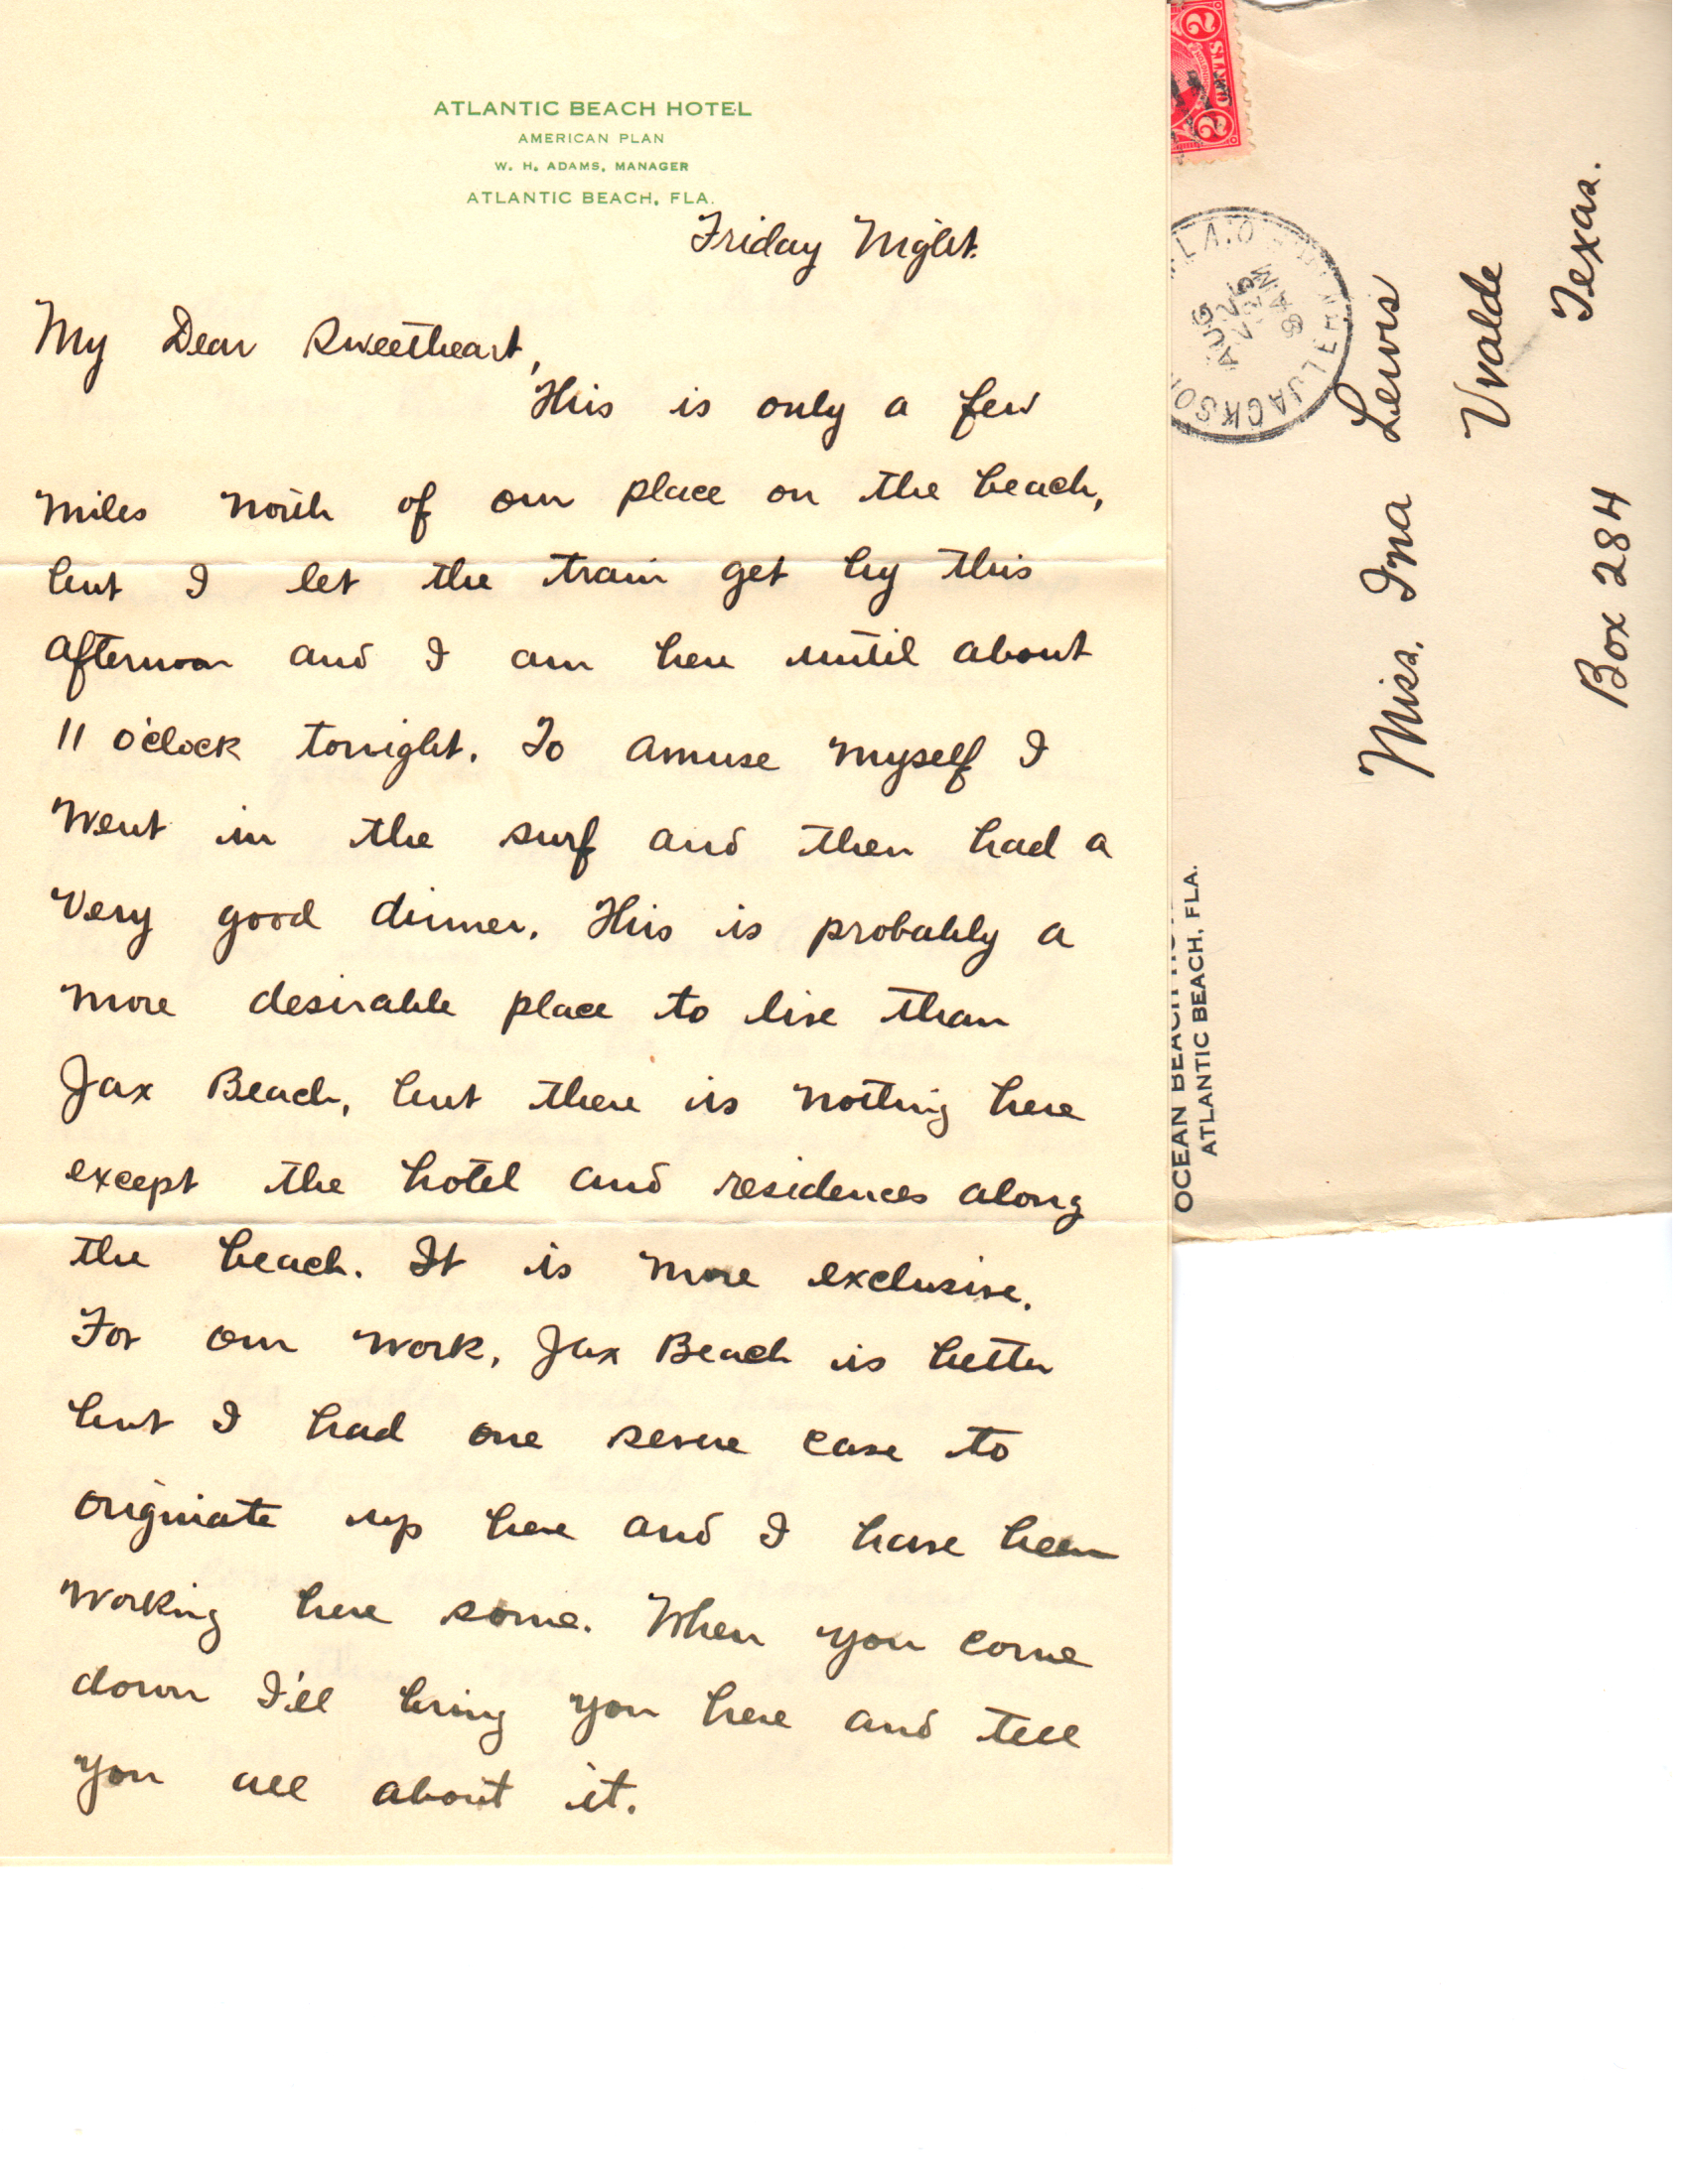 ATLANTIC BEACH HOTEL
AMERICAN PLAN
W. H. ADAMS, MANAGER
ATLANTIC BEACH, FLA.
Friday Night.
My Dear Sweetheart,
This is only a few
miles north of our place on the beach,
but I let the train get by this
afternoon and I am here until about
11 o'clock tonight. To amuse myself I
went in the surf and then had a
very good dinner. This is probably a
more desirable place to live than
Jax Beach, but there is nothing here
except the hotel and residences along
the beach. It is more exclusive.
For our work, Jax Beach is better
but I had one severe case to
originate up here and I have been
working here some. When you come
down I'll bring you here and tell
you all about it.
2 CENTS 2
JACKSO
LA.
AUG
8 AM
Miss. Ina Lewis
Uvalde
Texas.
Box 284
OCEAN BEACH
ATLANTIC BEACH, FLA.